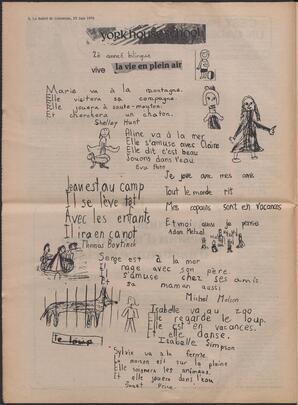 york house school
2è année bilingue
vive la vie en plein air
Marie va à la montagne.
Elle visitera sa compagne.
Elle jouera à saute-mouton.
Et cherchera un chaton.
Shelley Hunt
Aline va à la mer
Elle s'amuse avec Claire
Elle dit c'est beau
Jouons dans l'eau
Je joue avec mes amis
Tout le monde rit
Mes copains sont en vacances
Et moi aussi je pense
Jean est au camp
Il se lève
Avec les enfants
Il ira en canot
Thomas
Serge est à la mer
Il nage avec son père.
Il s'amuse chez ses amis.
Et sa maman aussi
Michel
Isabelle va au zoo
Elle regarde le loup.
Elle est en vacances.
Et elle danse.
Isabelle Simpson
le loup
Sylvie va à la ferme
La maison est sur la plaine
Elle soignera les animaux.
Et elle jouera dans l'eau
Janet